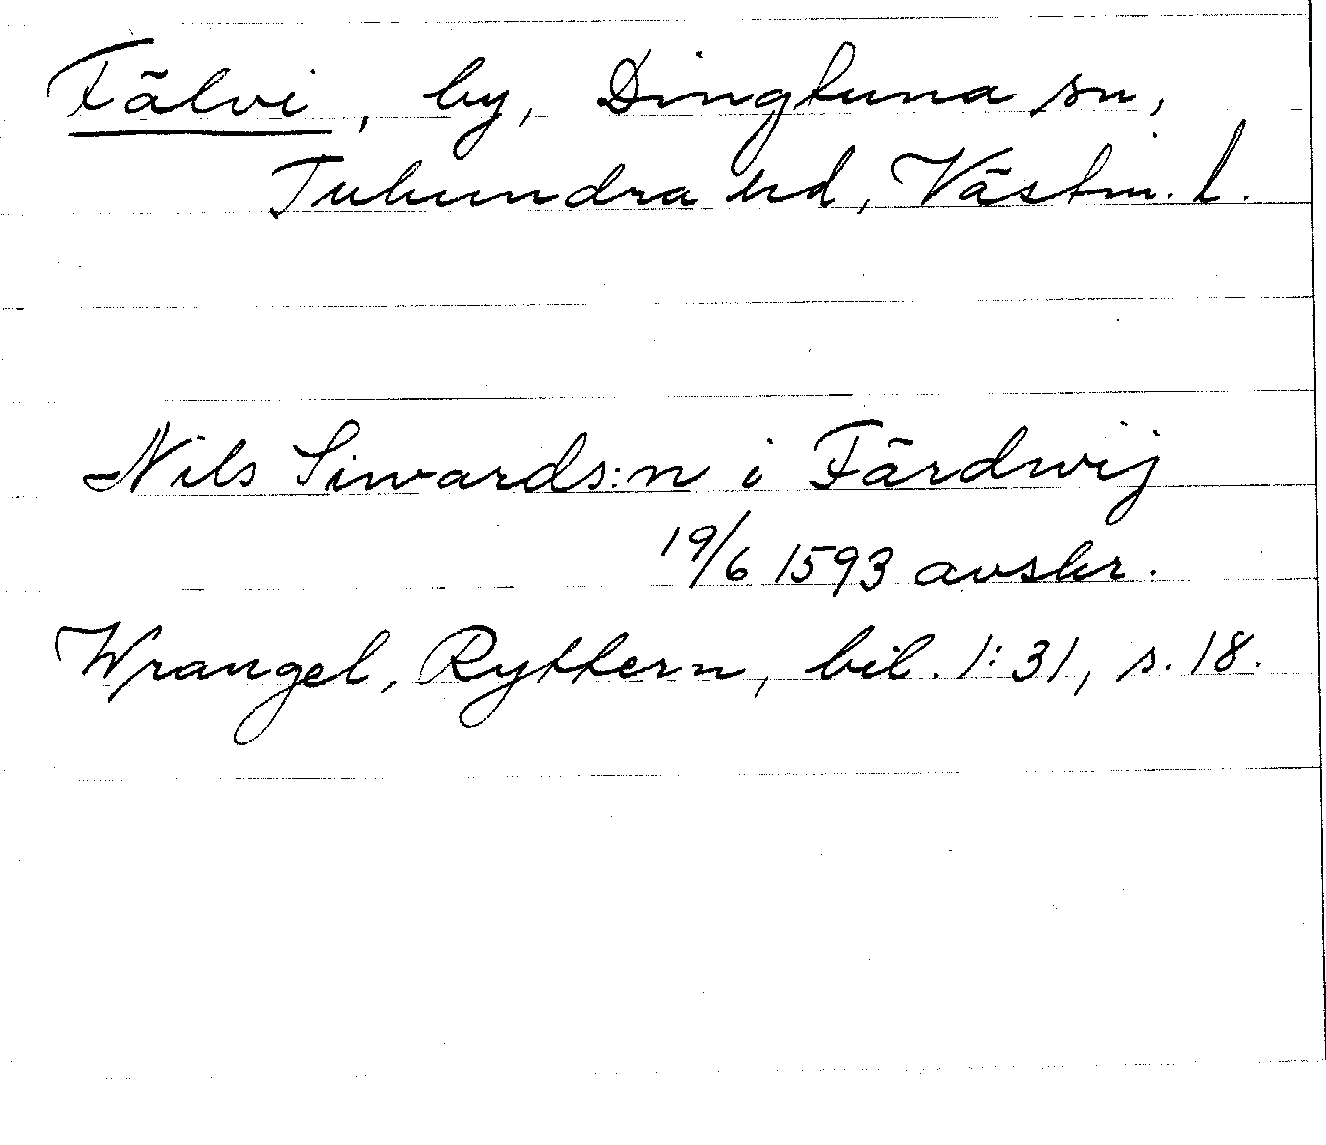 Fälvi, by, Dingtuna sn,
Tuhundra hd, Västm. l.
Nils Siwards:n i Färdwij
19/6 1593 avskr.
Wrangel, Ryttern, bil. 1:31, s. 18.